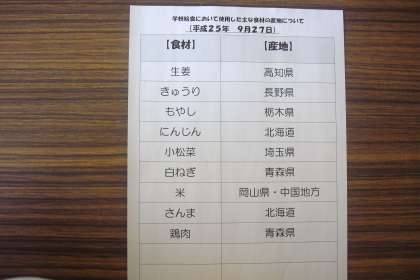 学校給食において使用した主な食材の産地について
(平成25年 9月27日)
【食材】 【産地】
生姜 高知県
きゅうり 長野県
もやし 栃木県
にんじん 北海道
小松菜 埼玉県
白ねぎ 青森県
米 岡山県・中国地方
さんま 北海道
鶏肉 青森県